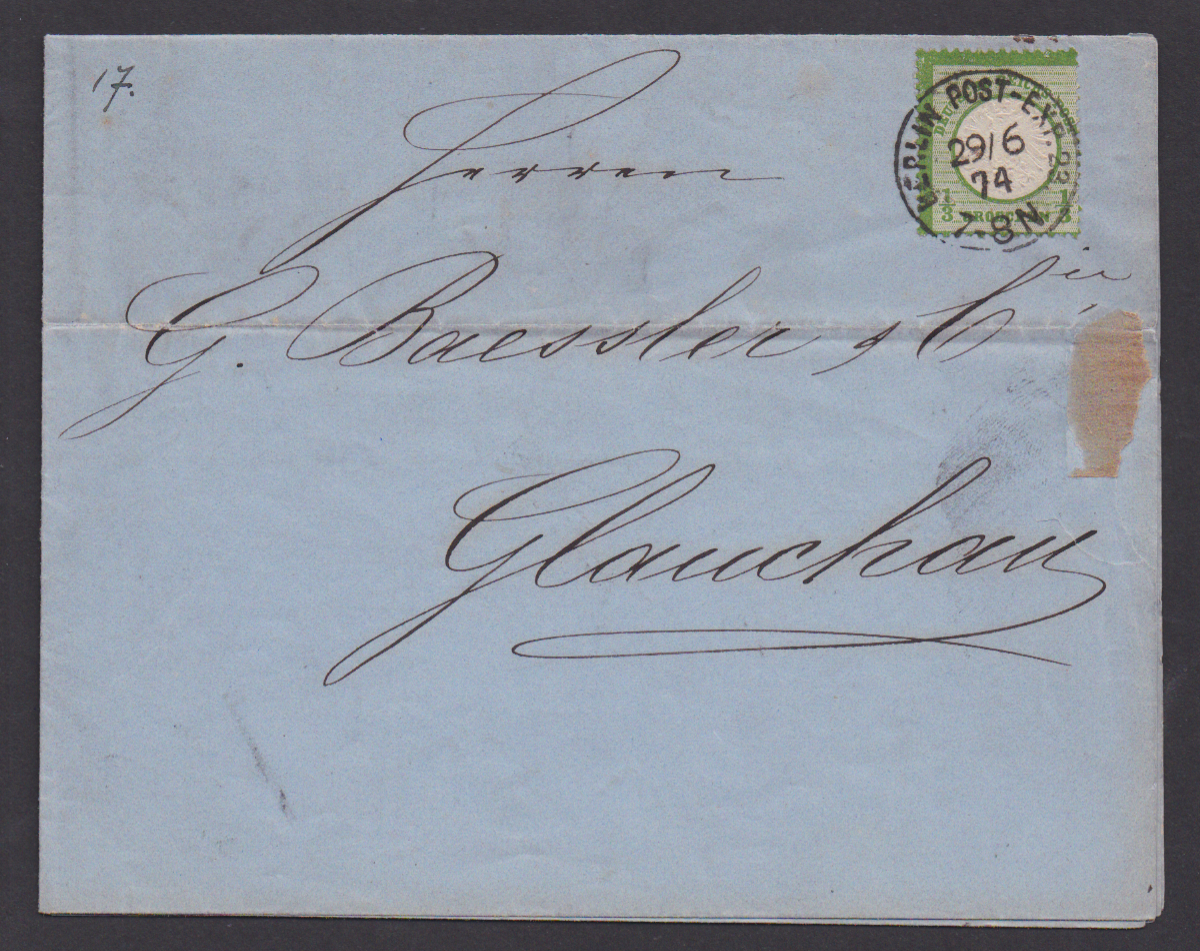 17.
BERLIN POST-EXP. 23
29/6
74
7-8N
1/3 GROSCHEN 1/3
Herren
G. Baessler & Cie
Glauchau